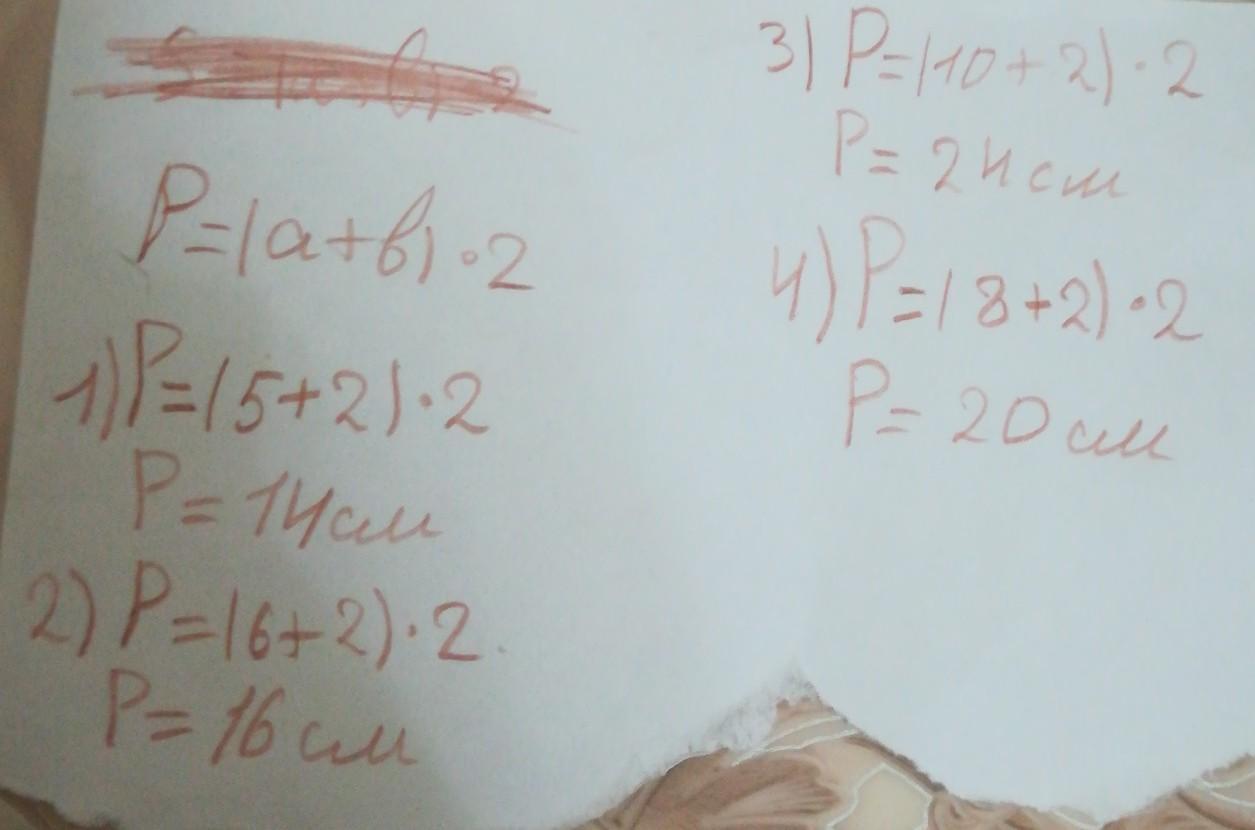 P=(a+b)·2
1) P=(5+2)·2
P=14см
2) P=(6+2)·2
P=16см
3) P=(10+2)·2
P=24см
4) P=(8+2)·2
P=20см